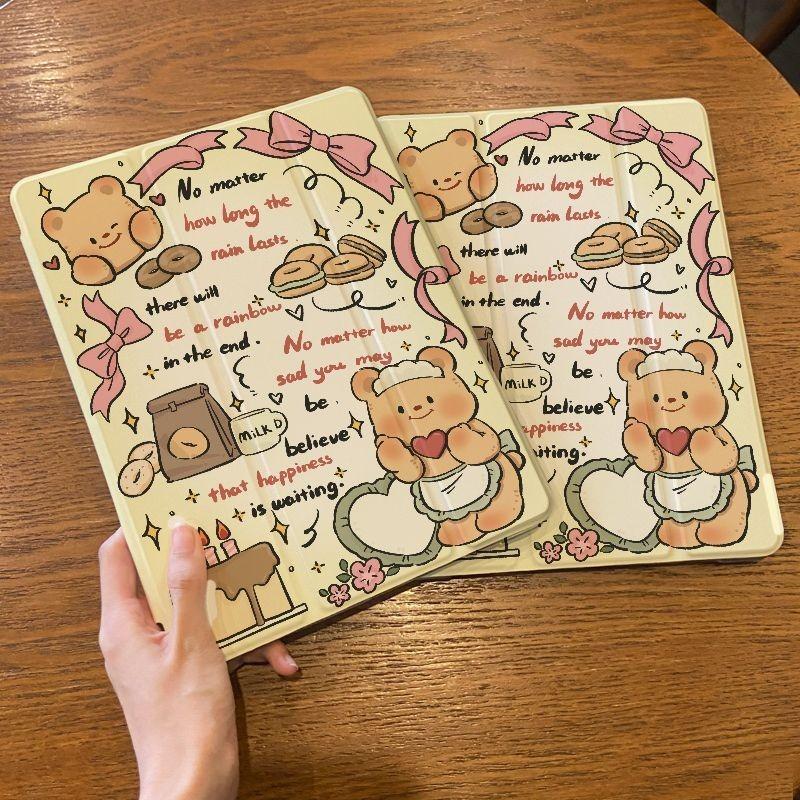 No matter
how long the
rain lasts
there will
be a rainbow
in the end.
No matter how
sad you may
be
MiLK
believe
that happiness
is waiting.
No matter
how long the
rain lasts
there will
be a rainbow
in the end.
No matter how
sad you may
be
MiLK
believe
appiness
iting.